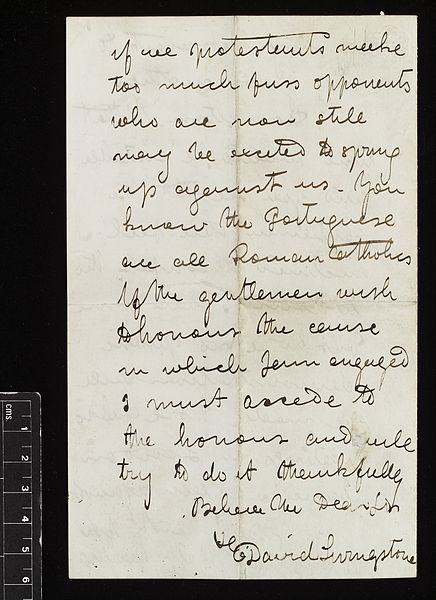 if we protestants make
too much fuss opponents
who are now still
may be excited to spring
up against us - You
know the Portuguese
are all Roman Catholics
If the gentlemen wish
to honour the cause
in which I am engaged
I must accede to
the honour and will
try to do it thankfully
Believe Me Dear Sir
&c
David Livingstone
cms
1
2
3
4
5
6